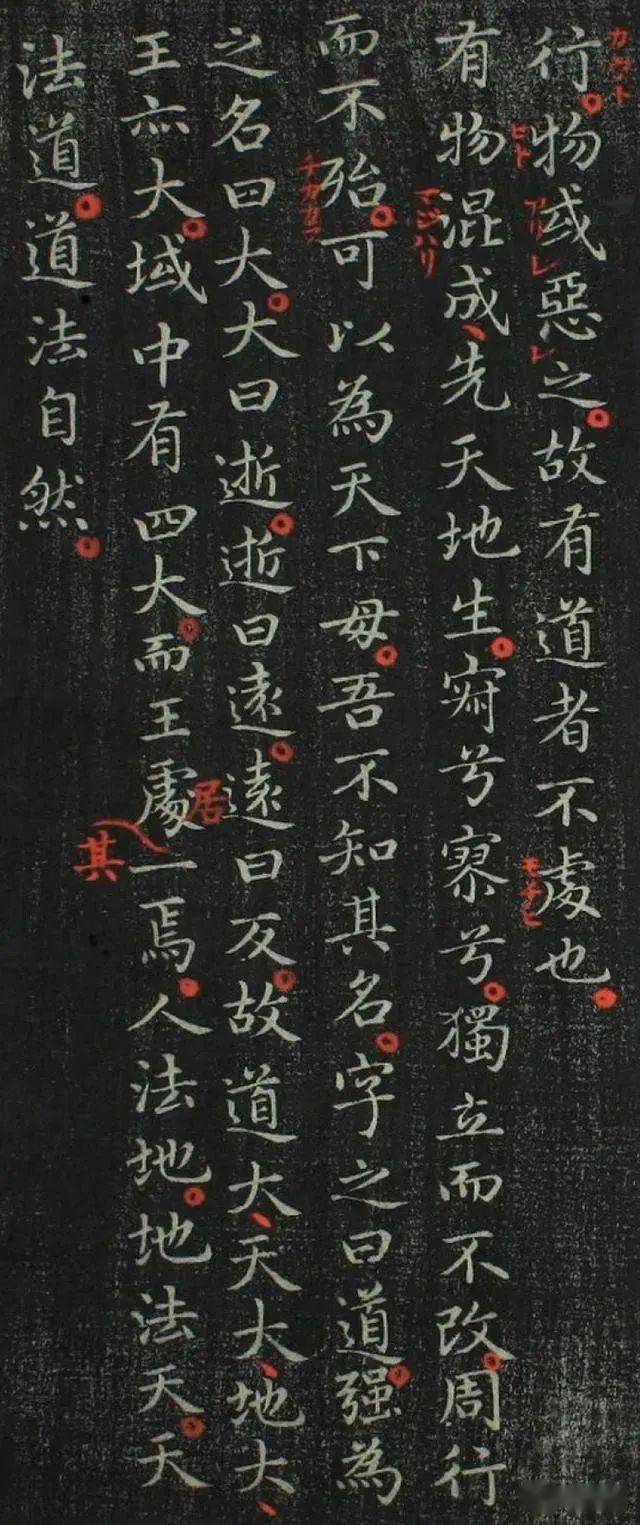 行物或惡之故有道者不處也
有物混成先天地生寂兮寥兮獨立而不改周行
而不殆可以為天下母吾不知其名字之曰道强為
之名曰大大曰逝逝曰遠遠曰反故道大天大地大
王亦大域中有四大而王處一焉人法地地法天天
法道道法自然
ヒト
アリ
レ
レ
モチヒ
マジハリ
居
其